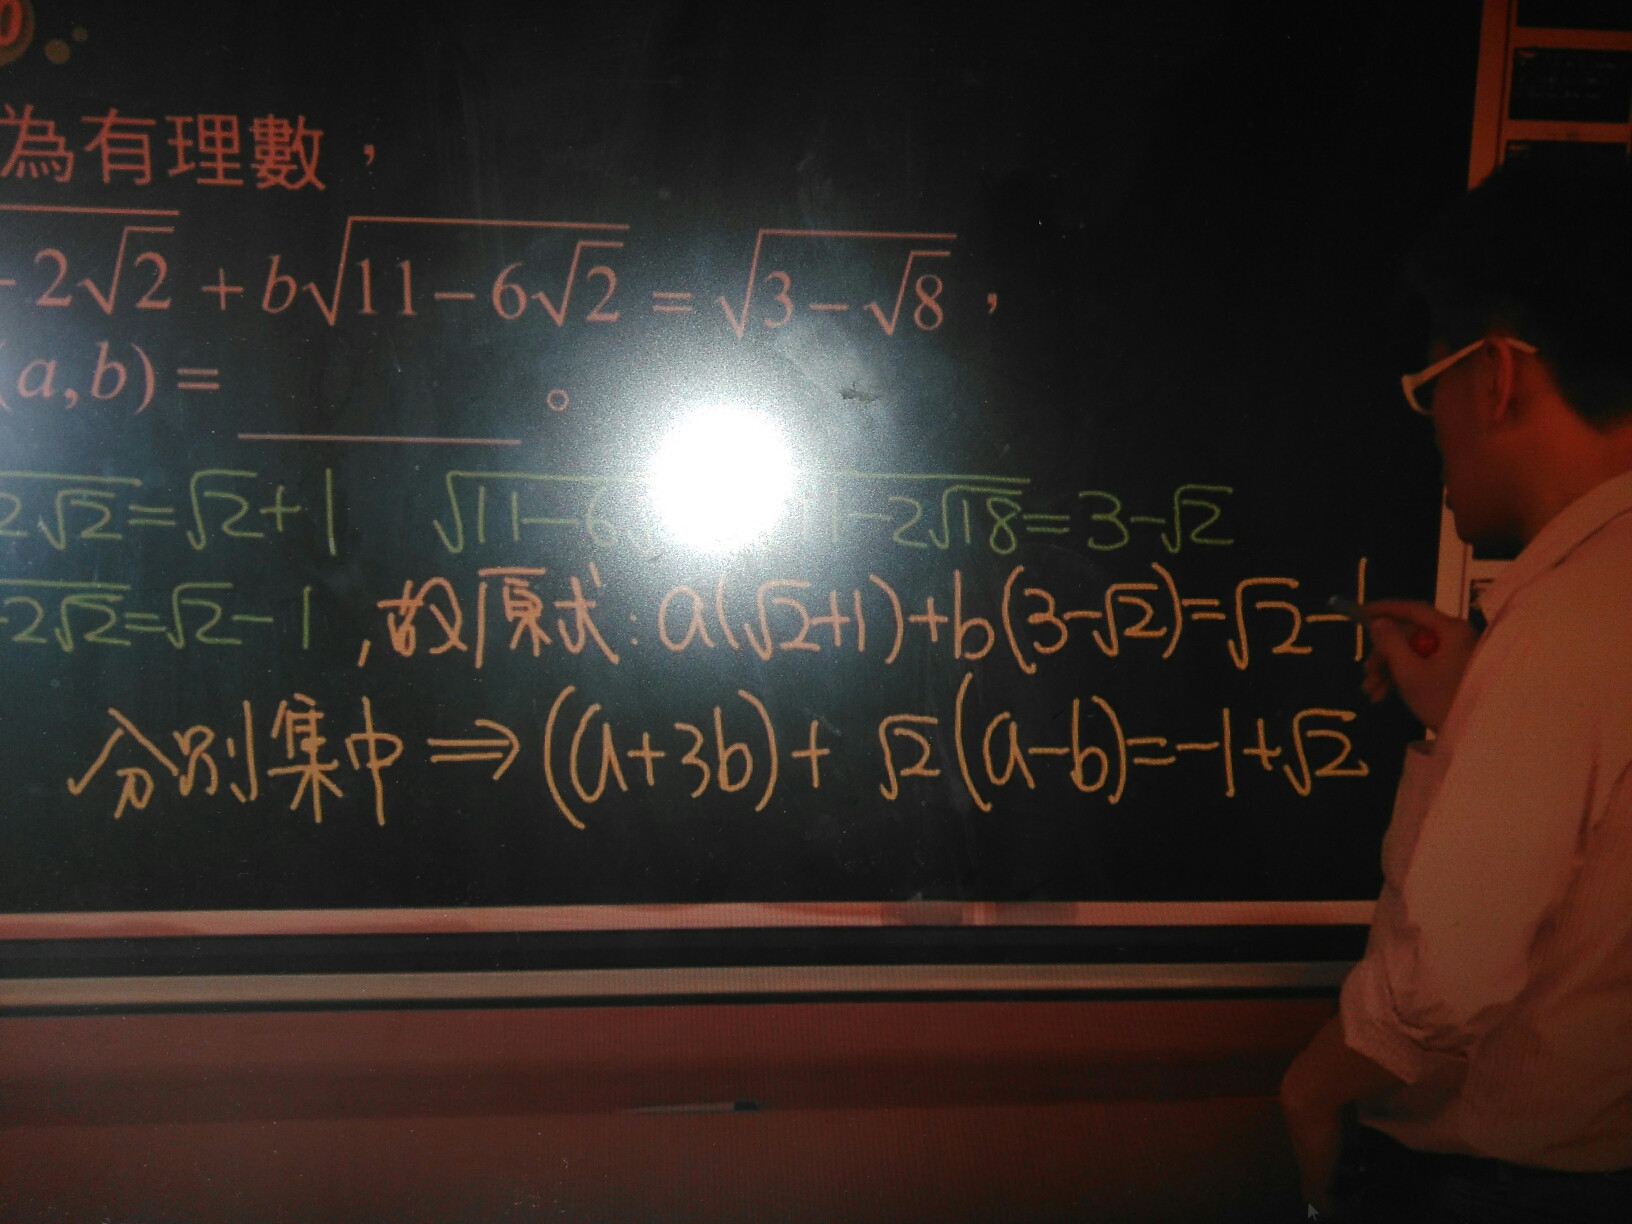 為有理數，
- 2√2 + b√11 - 6√2 = √3 - √8，
(a, b) = ______。
2√2 = √2 + 1 √11 - 6 11 - 2√18 = 3 - √2
-2√2 = √2 - 1, 故原式: a(√2+1) + b(3-√2) = √2 - 1
分別集中 ⇒ (a+3b) + √2(a-b) = -1 + √2